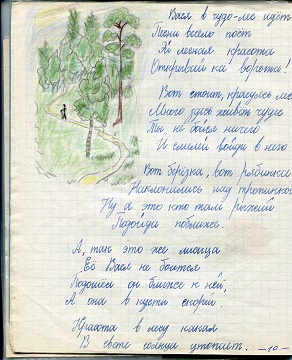 Вася в чудо-лес идёт
Песни весело поёт
Ай лесная красота
Открывай-ка ворота!
Вот стоит, красуясь лес
Много здесь живёт чудес
Ты не бойся ничего
И смелей войди в него
Вот берёзка, вот рябинка
Наклонились над тропинкой
Ну а это кто там рыжий
Подойди поближе.
А, так это же лисица
Её Вася не боится
Подошёл он ближе к ней,
А она в кусты скорей.
Красота в лесу какая
В свете солнца утопает.
-10-